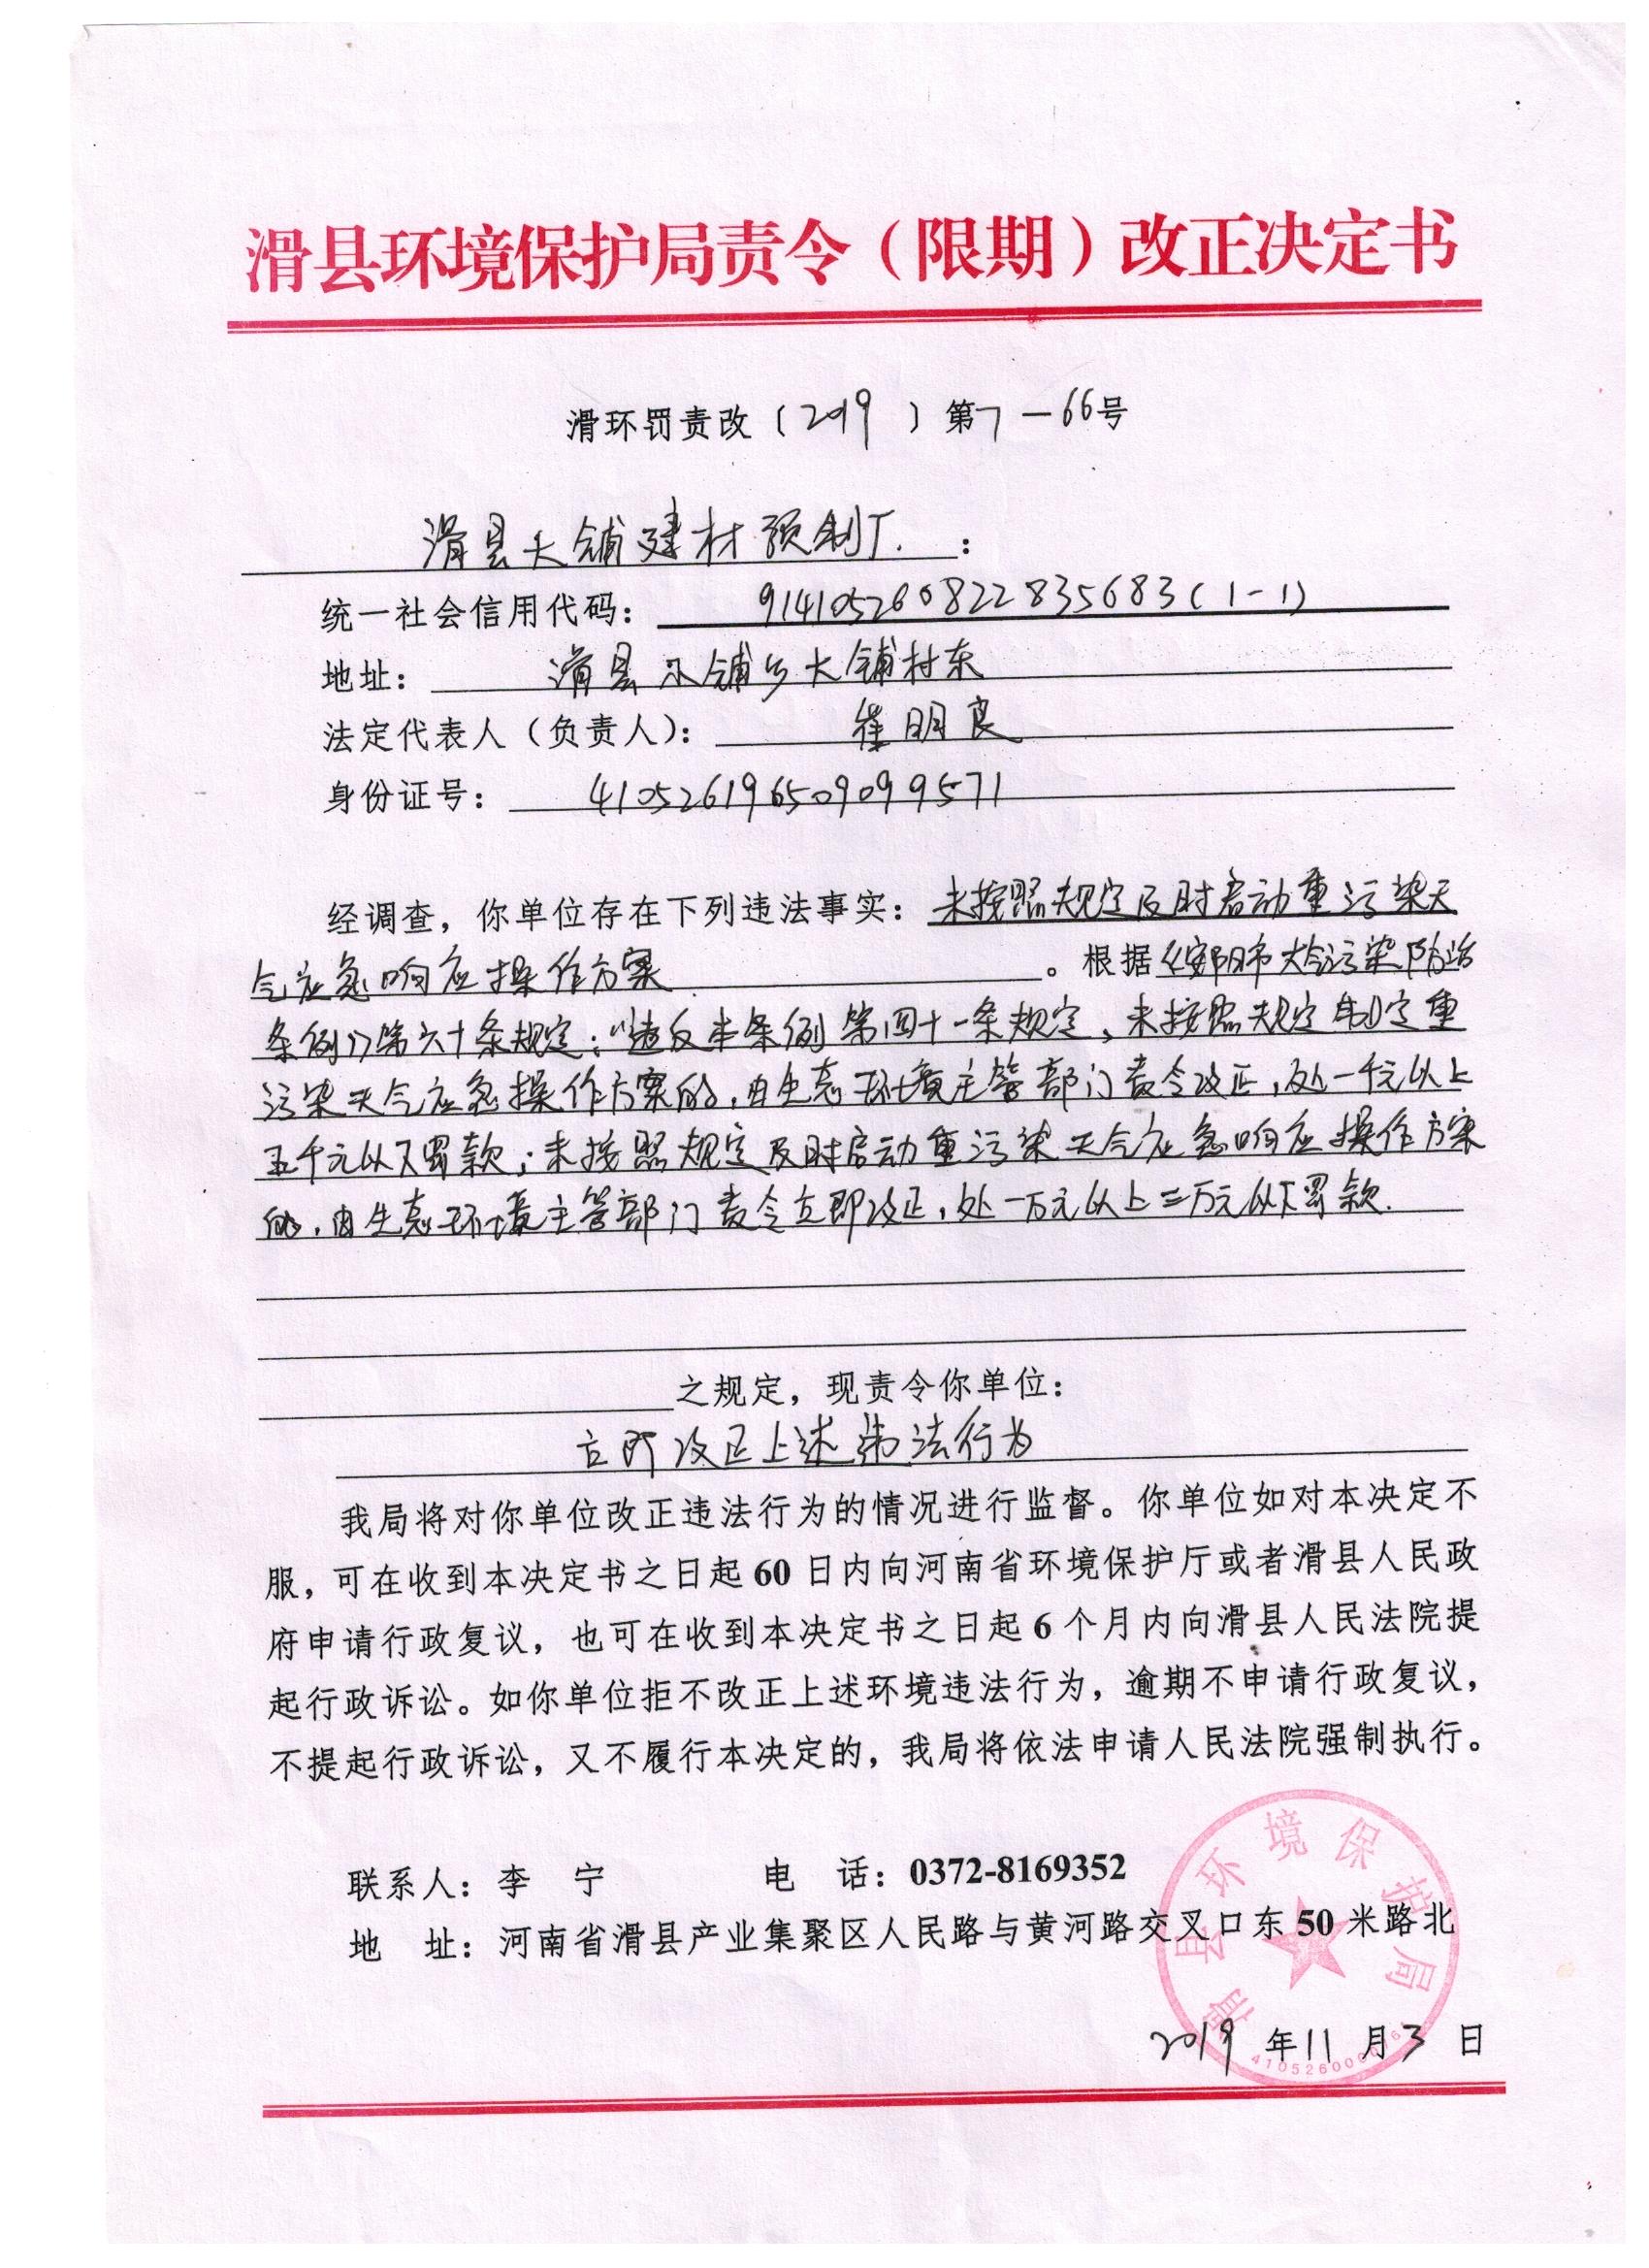 滑县环境保护局责令（限期）改正决定书
滑环罚责改〔2019〕第7-66号
滑县大铺建材预制厂．：
统一社会信用代码：914105260822835683(1-1)
地址：滑县小铺乡大铺村东
法定代表人（负责人）：崔明良
身份证号：410526196509099571
经调查，你单位存在下列违法事实：未按照规定及时启动重污染天
气应急响应操作方案。根据《安阳市大气污染防治
条例》第六十条规定："违反本条例第四十一条规定，未按照规定制定重
污染天气应急操作方案的，由生态环境主管部门责令改正，处一千元以上
五千元以下罚款；未按照规定及时启动重污染天气应急响应操作方案
的，由生态环境主管部门责令立即改正，处一万元以上三万元以下罚款．
之规定，现责令你单位：
立即改正上述违法行为
我局将对你单位改正违法行为的情况进行监督。你单位如对本决定不
服，可在收到本决定书之日起60日内向河南省环境保护厅或者滑县人民政
府申请行政复议，也可在收到本决定书之日起6个月内向滑县人民法院提
起行政诉讼。如你单位拒不改正上述环境违法行为，逾期不申请行政复议，
不提起行政诉讼，又不履行本决定的，我局将依法申请人民法院强制执行。
联系人：李　宁　　电　话：0372-8169352
地　址：河南省滑县产业集聚区人民路与黄河路交叉口东50米路北
滑县环境保护局
2019年11月3日